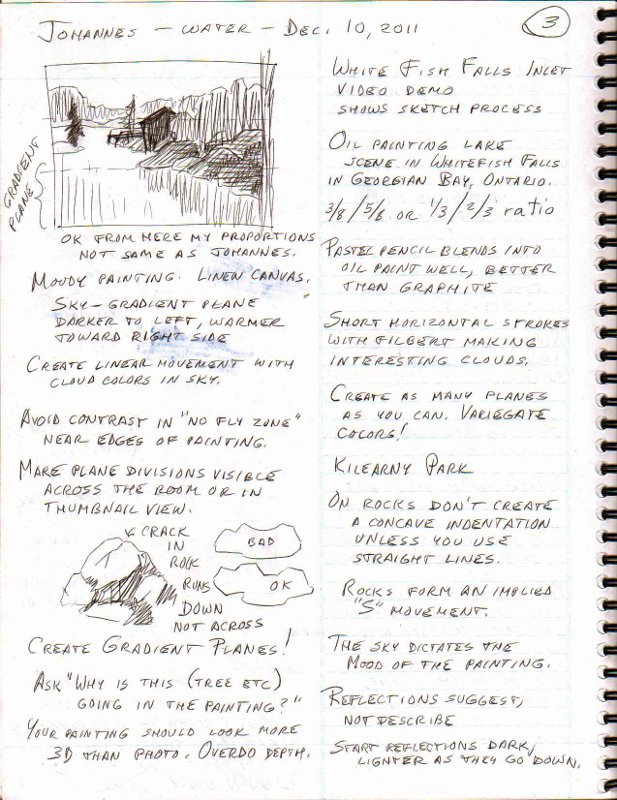 Johannes - Water - Dec. 10, 2011
3
Gradient
Plane
OK from here my proportions
not same as Johannes.
Moody painting. Linen canvas.
Sky - gradient plane
darker to left, warmer
toward right side
Create linear movement with
cloud colors in sky.
Avoid contrast in "no fly zone"
near edges of painting.
Make plane divisions visible
across the room or in
thumbnail view.
Crack
in
rock
runs
down
not across
Bad
OK
Create Gradient Planes!
Ask "Why is this (tree etc)
going in the painting?"
Your painting should look more
3D than photo. Overdo depth.
White Fish Falls Inlet
video demo
shows sketch process
Oil painting lake
scene in Whitefish Falls
in Georgian Bay, Ontario.
3/8 / 5/8 or 1/3 / 2/3 ratio
Pastel pencil blends into
oil paint well, better
than graphite
Short horizontal strokes
with filbert making
interesting clouds.
Create as many planes
as you can. Variegate
colors!
Kilearny Park
On rocks don't create
a concave indentation
unless you use
straight lines.
Rocks form an implied
"S" movement.
The sky dictates the
mood of the painting.
Reflections suggest,
not describe
Start reflections dark,
lighter as they go down.